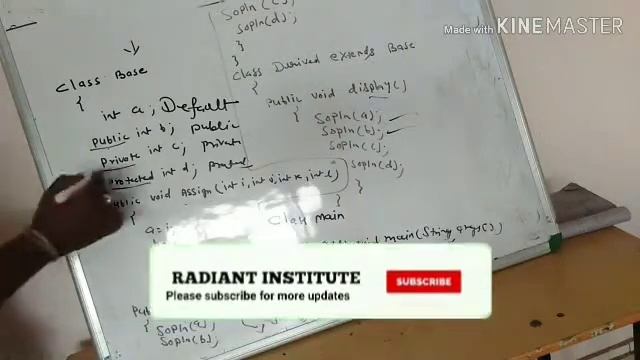 Made with KINEMASTER
Sopln(c);
Sopln(d);
}
}
Class Base
{
int a; Default
Public int b; public
Private int c; private
Protected int d;
Public void Assign(int i, int j, int k, int l)
{
a=i
Class Derived extends Base
Public void display()
{ Sopln(a);
Sopln(b);
Sopln(c);
Sopln(d);
}
}
Class main
void main(String args[])
RADIANT INSTITUTE
Please subscribe for more updates
SUBSCRIBE
Sopln(a);
Sopln(b);